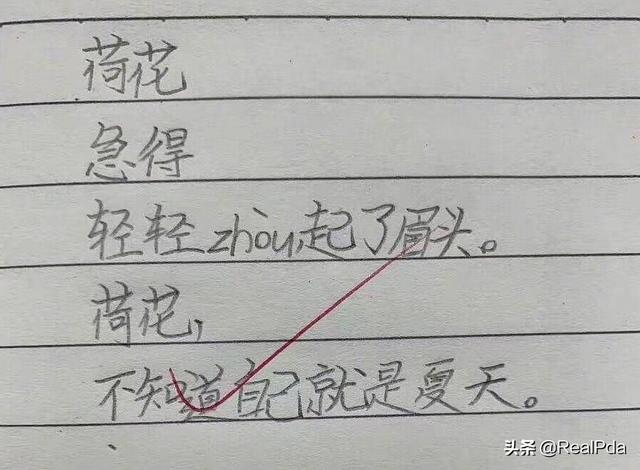 荷花
急得
轻轻zhòu起了眉头。
荷花，
不知道自己就是夏天。
头条 @RealPda